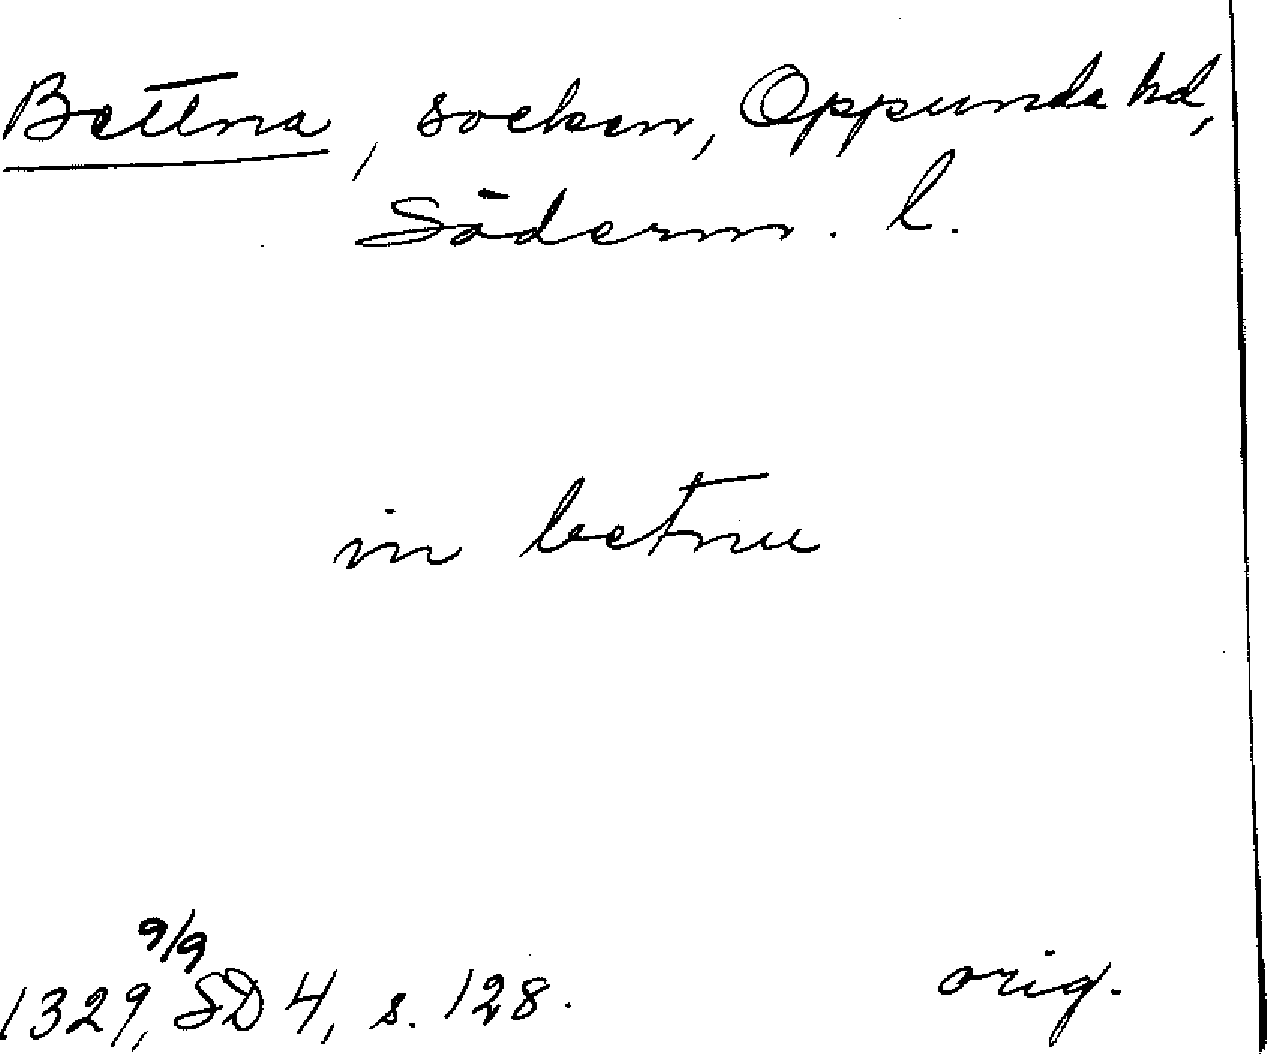 Bettna, socken, Oppunda hd,
Söderm. l.
in betnu
1329 9/9, SD 4, s. 128. orig.